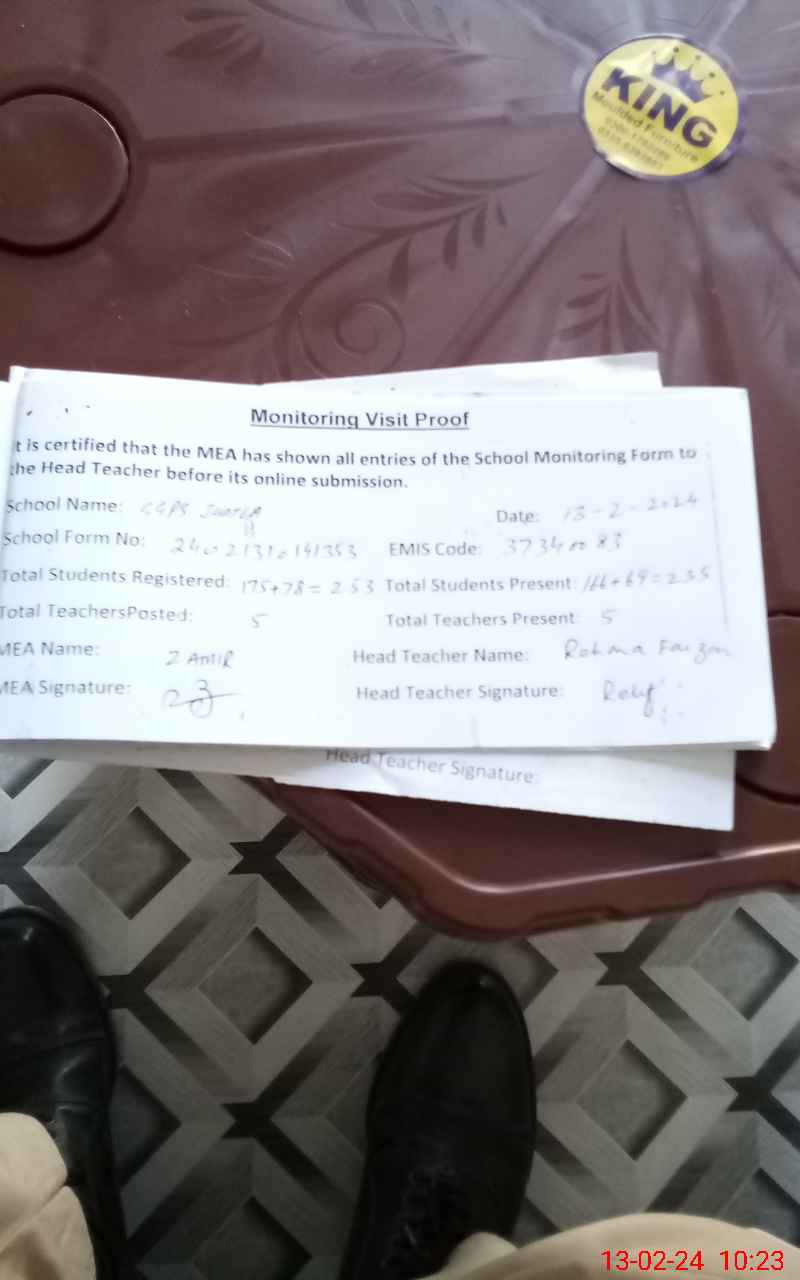 KING
Moulded Furniture
Monitoring Visit Proof
t is certified that the MEA has shown all entries of the School Monitoring Form to
the Head Teacher before its online submission.
School Name: GGPS
Date: 13-2-2024
School Form No: 24021310141353 EMIS Code:
Total Students Registered: 175+78=253 Total Students Present: 166+69=235
Total TeachersPosted: 5 Total Teachers Present: 5
MEA Name: Head Teacher Name: Rohma Faizan
MEA Signature: Head Teacher Signature:
Head Teacher Signature:
13-02-24 10:23